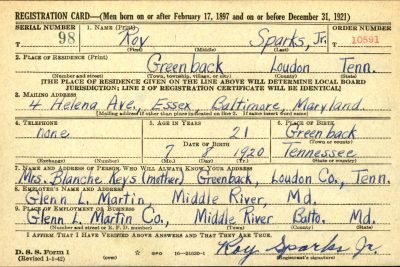 REGISTRATION CARD—(Men born on or after February 17, 1897 and on or before December 31, 1921)
SERIAL NUMBER 1. NAME (Print) ORDER NUMBER
T 98 Roy Sparks, Jr. T 10591
(First) (Middle) (Last)
2. PLACE OF RESIDENCE (Print)
Greenback Loudon Tenn.
(Number and street) (Town, township, village, or city) (County) (State)
[THE PLACE OF RESIDENCE GIVEN ON THE LINE ABOVE WILL DETERMINE LOCAL BOARD
JURISDICTION; LINE 2 OF REGISTRATION CERTIFICATE WILL BE IDENTICAL]
3. MAILING ADDRESS
4 Helena Ave., Essex, Baltimore, Maryland.
[Mailing address if other than place indicated on line 2. If same insert word same]
4. TELEPHONE 5. AGE IN YEARS 6. PLACE OF BIRTH
none 21 Greenback
DATE OF BIRTH (Town or county)
7 8 1920 Tennessee
(Exchange) (Number) (Mo.) (Day) (Yr.) (State or country)
7. NAME AND ADDRESS OF PERSON WHO WILL ALWAYS KNOW YOUR ADDRESS
Mrs. Blanche Keys (mother) Greenback, Loudon Co., Tenn.
8. EMPLOYER'S NAME AND ADDRESS
Glenn L. Martin, Middle River, Md.
9. PLACE OF EMPLOYMENT OR BUSINESS
Glenn L. Martin Co., Middle River Balto. Md.
(Number and street or R. F. D. number) (Town) (County) (State)
I AFFIRM THAT I HAVE VERIFIED ABOVE ANSWERS AND THAT THEY ARE TRUE.
D. S. S. Form 1
(Revised 1-1-42) (over) GPO 16—21630-1 Roy Sparks Jr.
(Registrant's signature)